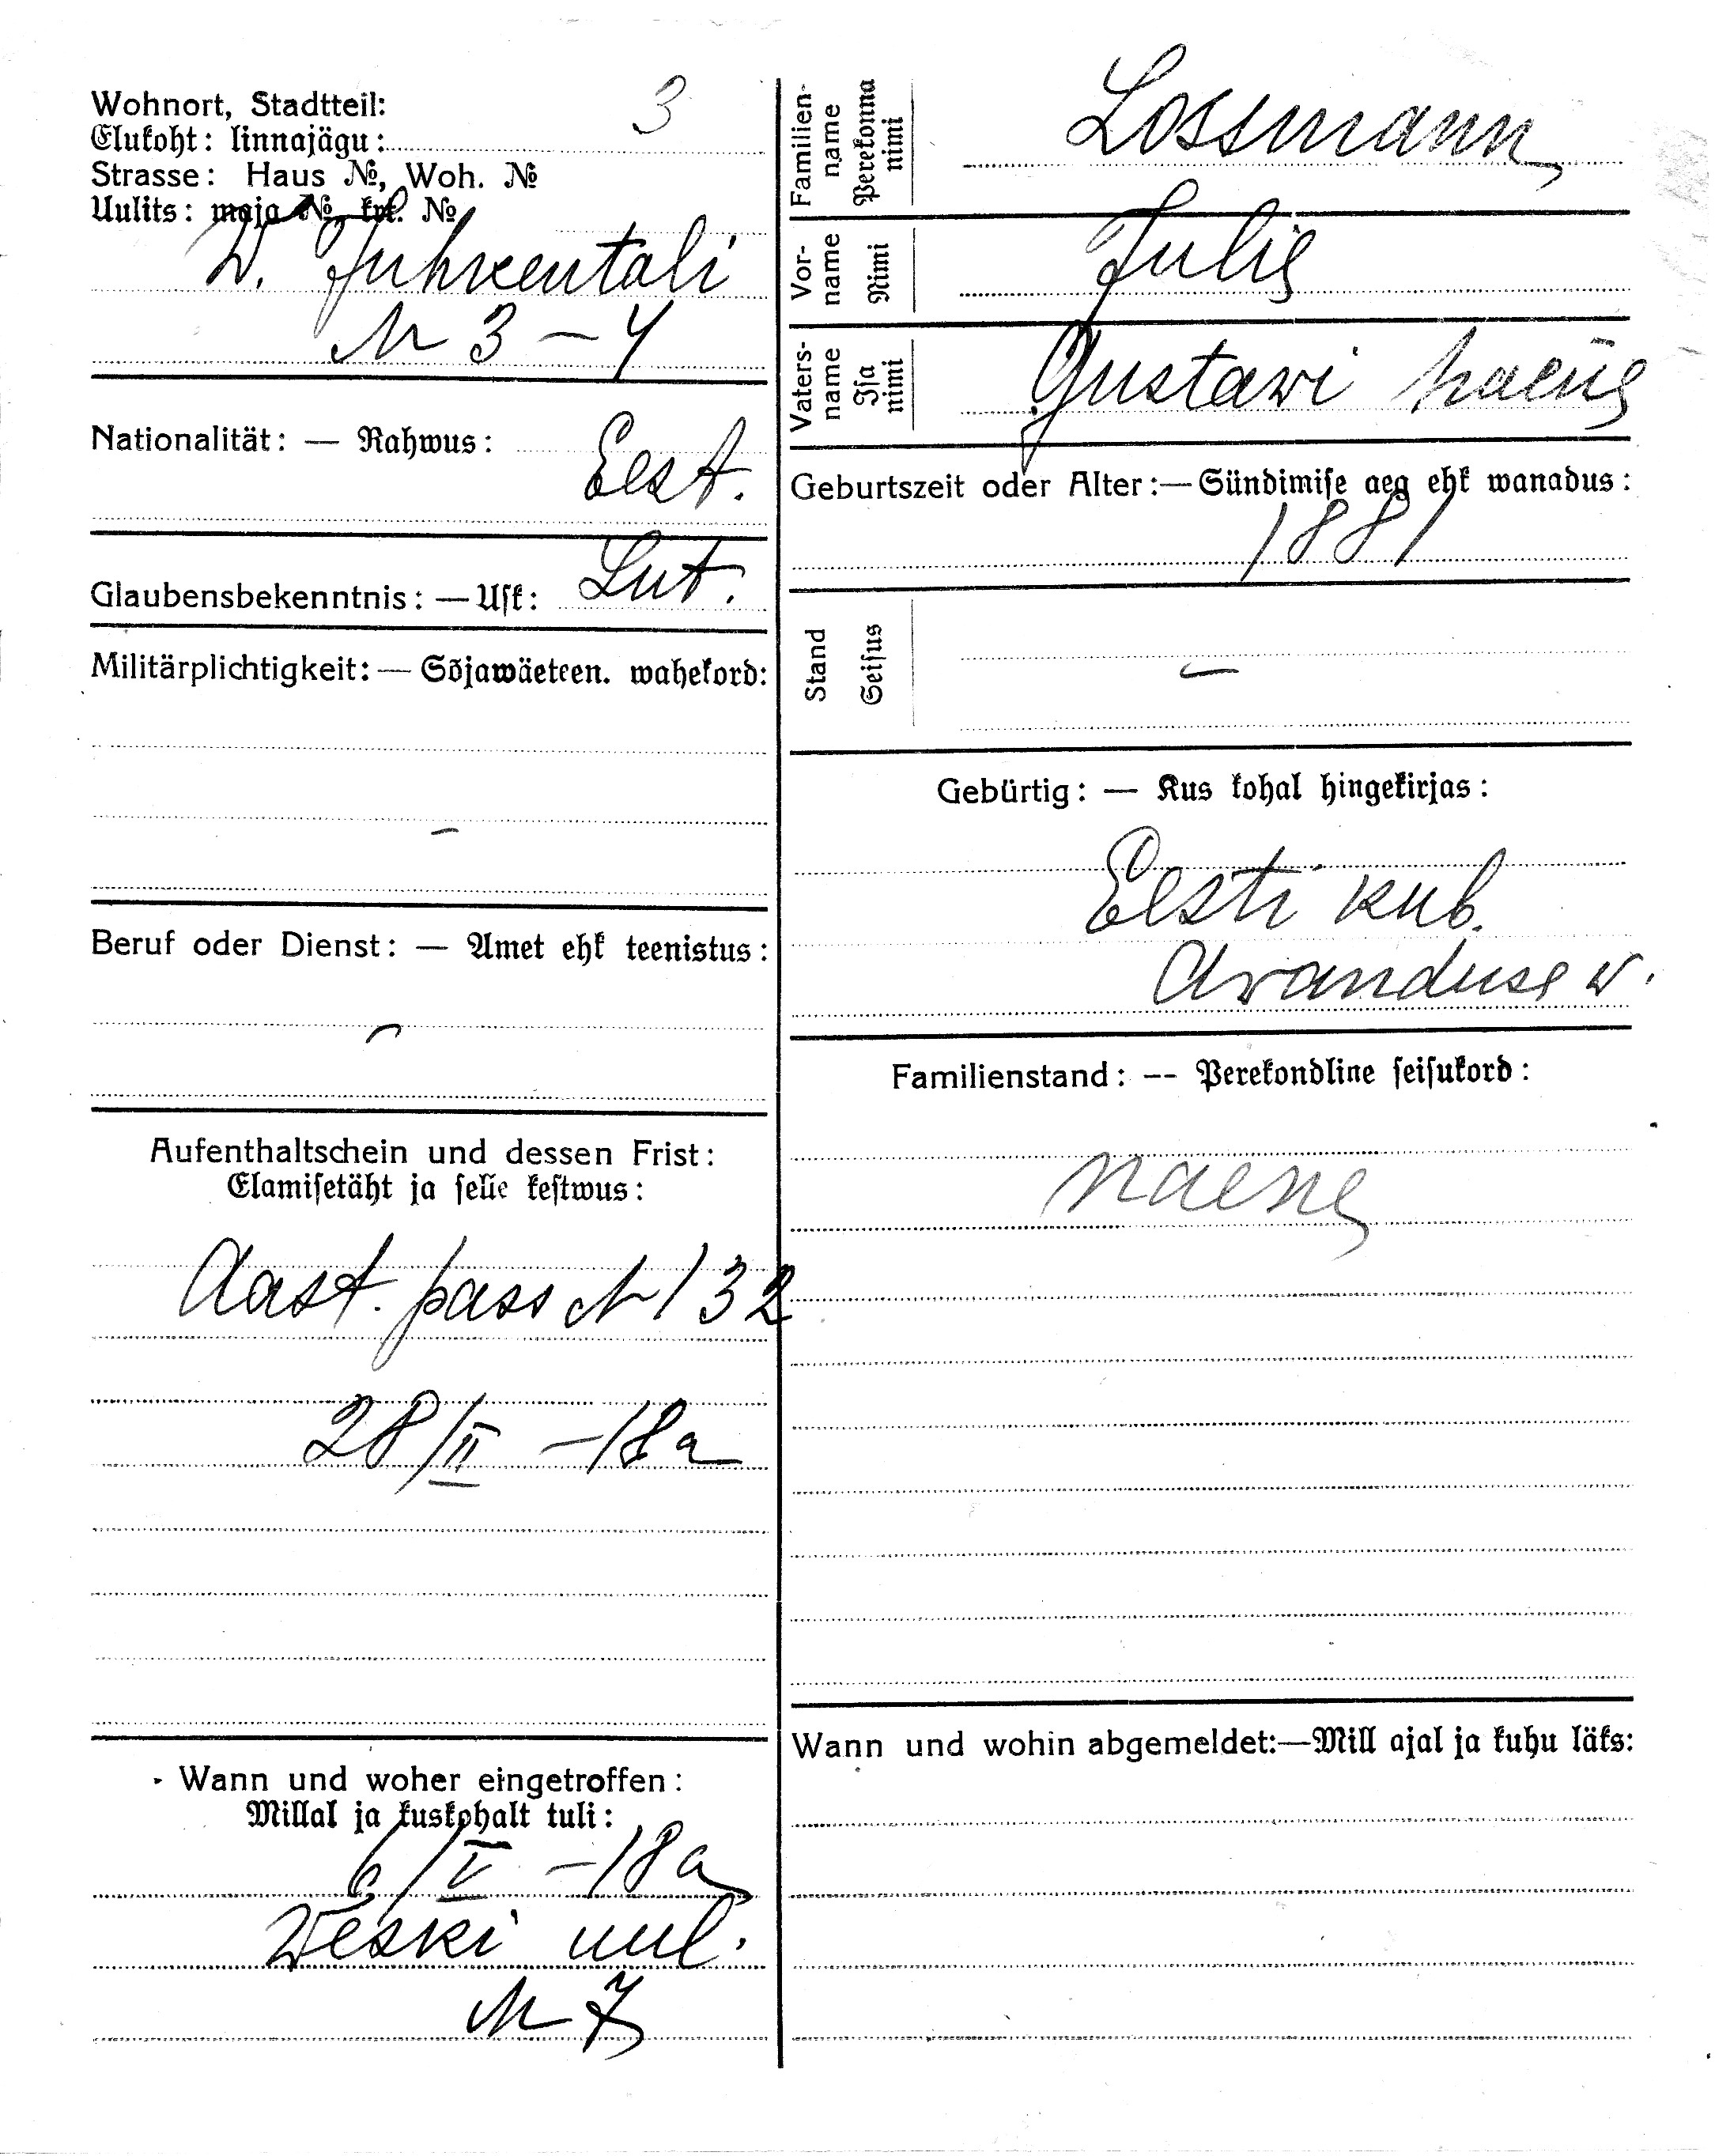 Wohnort, Stadtteil:
Elukoht: linnajägu: 3
Strasse: Haus №, Woh. №
Uulits: maja №, krt. №
W. Juhkentali
N 3 – 4
Nationalität: — Rahwus: Eest.
Glaubensbekenntnis: — Usk: Lut.
Militärplichtigkeit: — Sõjawäeteen. wahekord:
–
Beruf oder Dienst: — Amet ehk teenistus:
–
Aufenthaltschein und dessen Frist:
Elamisetäht ja selle kestwus:
Aast. pass N 132
28/II –18a
Wann und woher eingetroffen:
Millal ja kuskohalt tuli:
6/V –18a
Weski uul.
N 7
Familien-
name
Perekonna
nimi
Lossmann
Vor-
name
Nimi
Julie
Vaters-
name
Isa
nimi
Gustawi naene
Geburtszeit oder Alter:—Sündimise aeg ehk wanadus:
1881
Stand
Seisus
–
Gebürtig: — Kus kohal hingekirjas:
Eesti kub.
Awanduse w.
Familienstand: -- Perekondline seisukord:
naene
Wann und wohin abgemeldet:—Mill ajal ja kuhu läks: